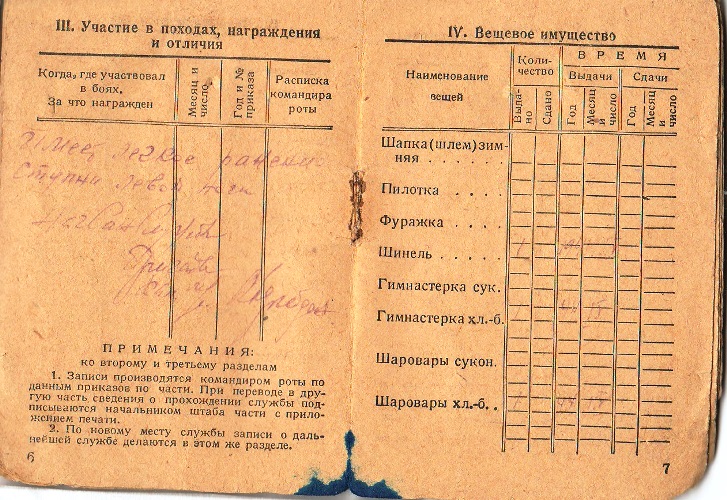 III. Участие в походах, награждения
и отличия
Когда, где участвовал
в боях.
За что награжден
Месяц и
число
Год и №
приказа
Расписка
командира
роты
Имеет легкое ранение
Ступни левой ноги
ПРИМЕЧАНИЯ:
ко второму и третьему разделам
1. Записи производятся командиром роты по
данным приказов по части. При переводе в дру-
гую часть сведения о прохождении службы под-
писываются начальником штаба части с прило-
жением печати.
2. По новому месту службы записи о даль-
нейшей службе делаются в этом же разделе.
6
IV. Вещевое имущество
Наименование
вещей
Коли-
чество
ВРЕМЯ
Выдачи
Сдачи
Выда-
но
Сдано
Год
Месяц
и
число
Год
Месяц
и
число
Шапка (шлем) зим-
няя . . . . . .
Пилотка . . . .
Фуражка . . . .
Шинель . . . . .
Гимнастерка сук.
Гимнастерка хл.-б.
Шаровары сукон.
Шаровары хл.-б. .
7